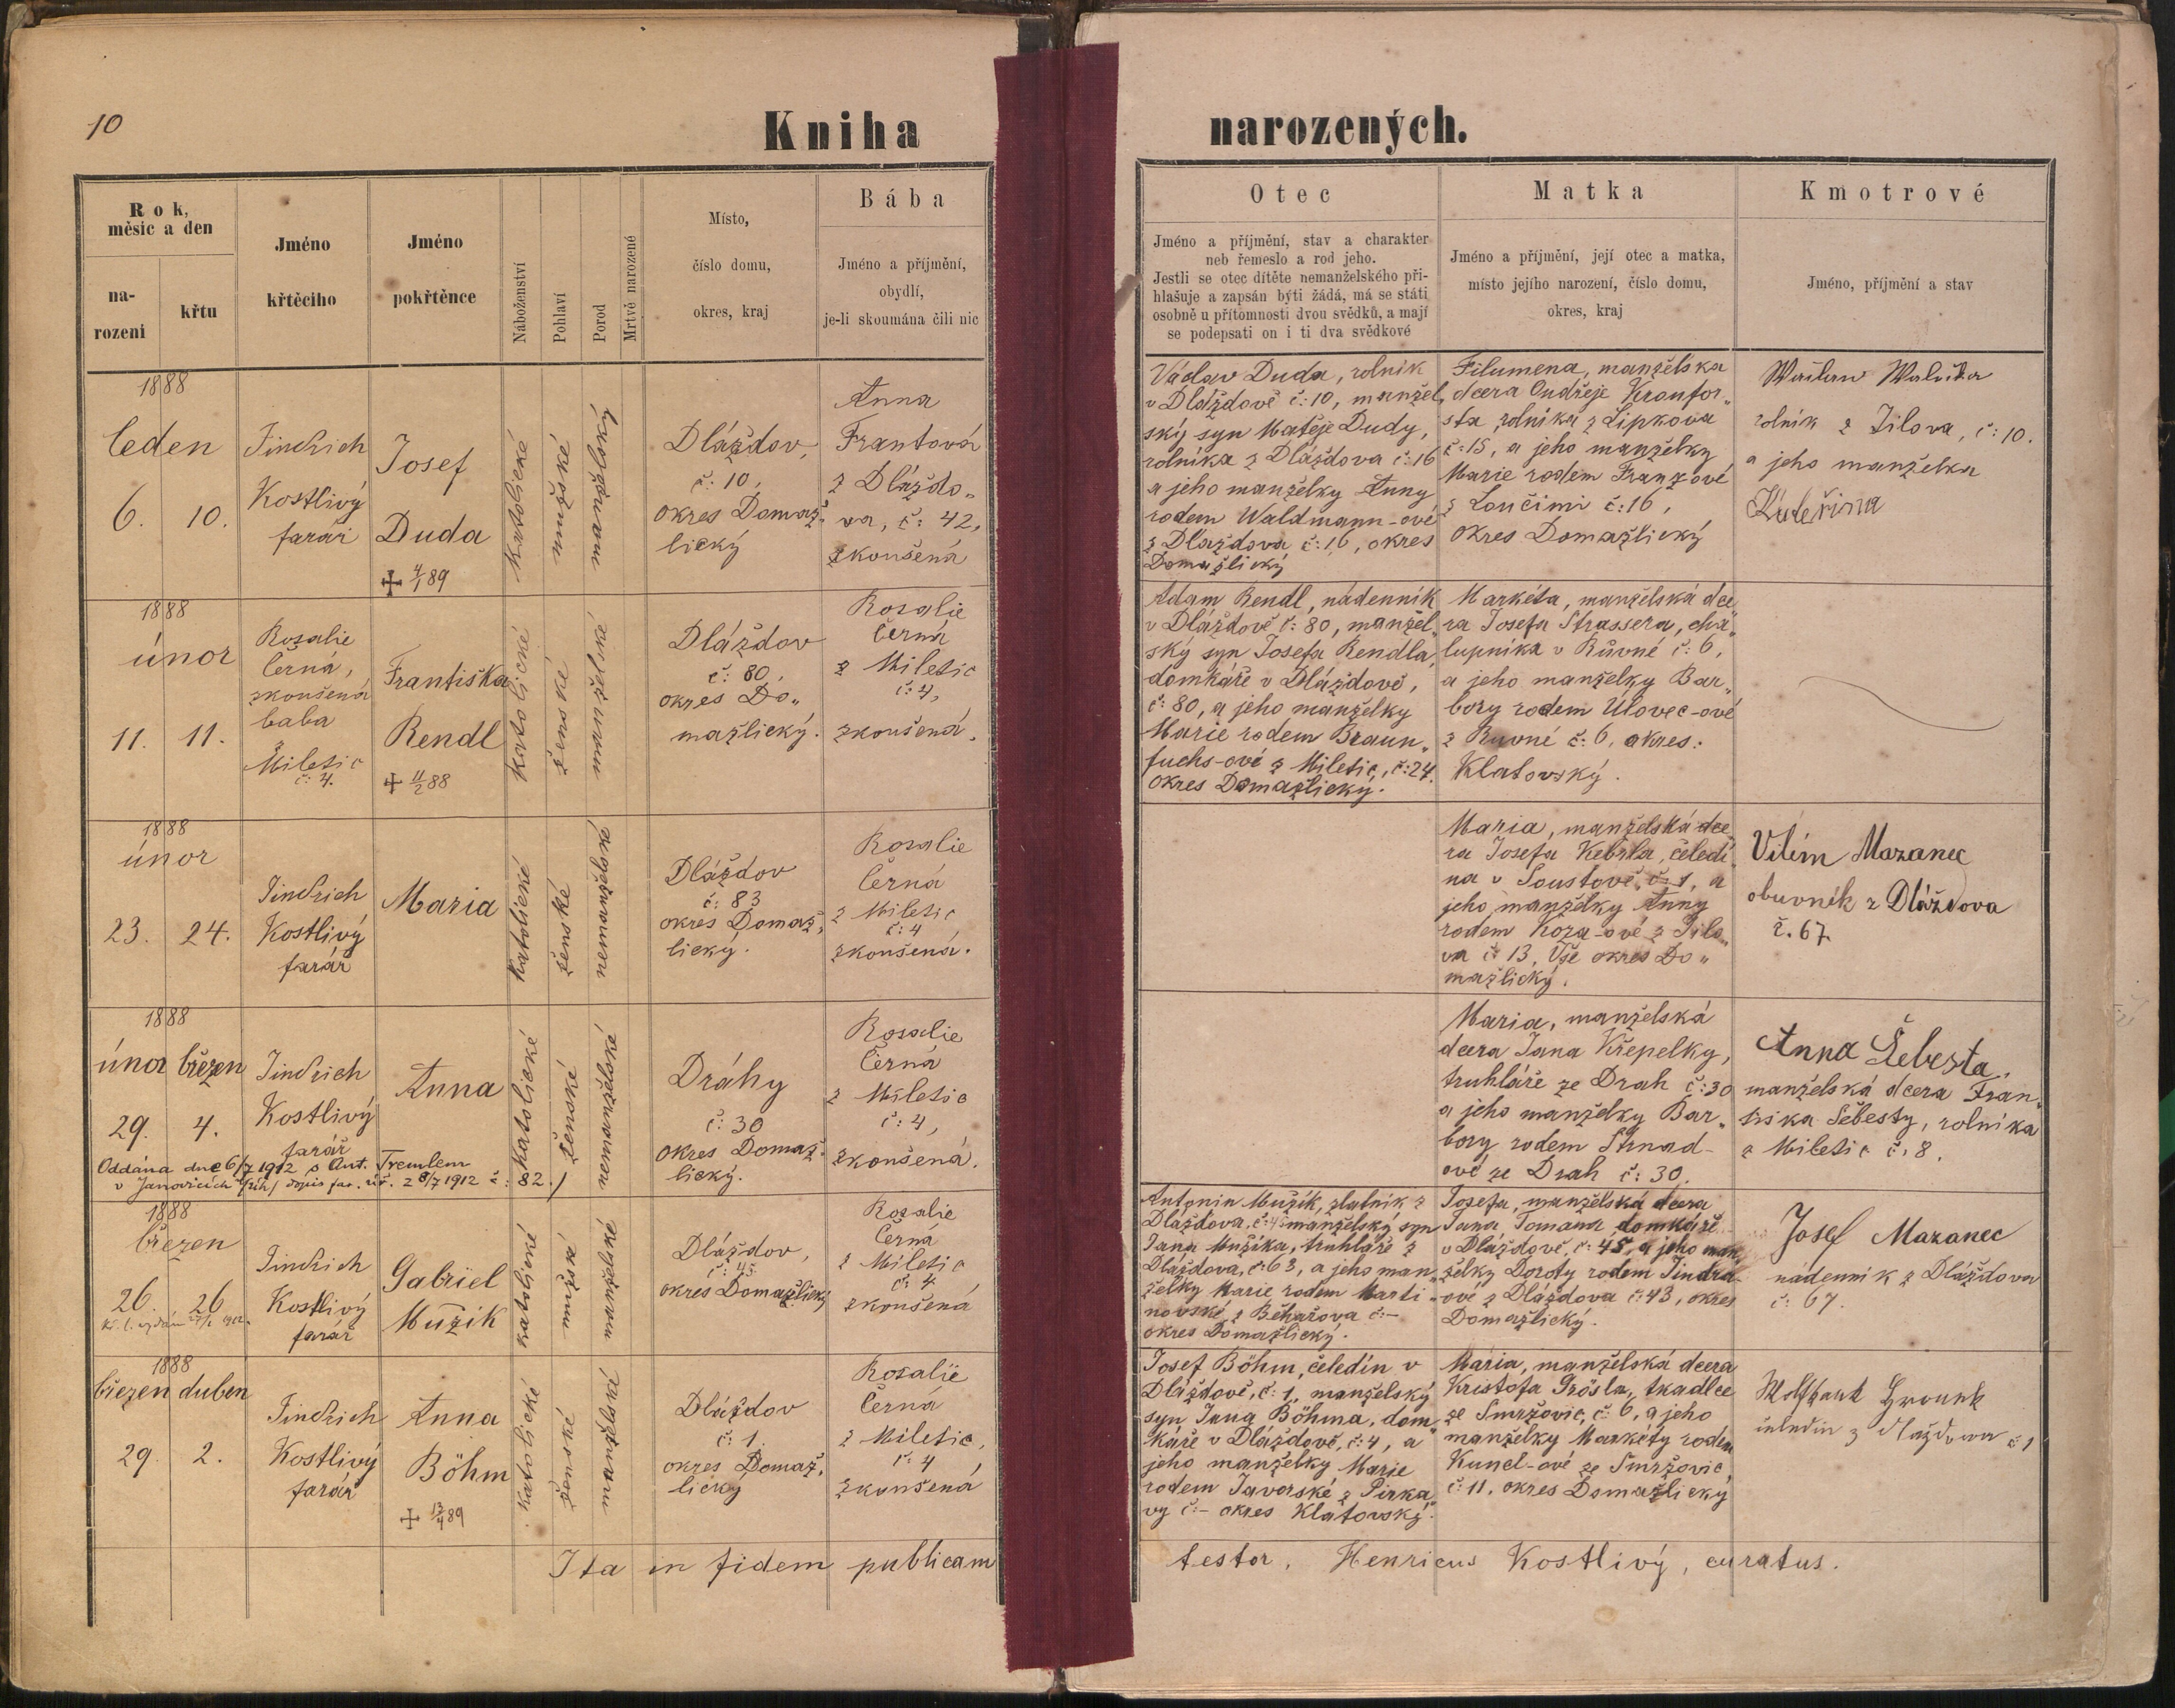 10
Kniha
narozených.
Rok,
měsíc a den
na-
rození
křtu
Jméno
křtěcího
Jméno
pokřtěnce
Náboženství
Pohlaví
Porod
Mrtvě narozené
Místo,
číslo domu,
okres, kraj
Bába
Jméno a příjmění,
obydlí,
je-li skoumána čili nic
Otec
Jméno a příjmění, stav a charakter
neb řemeslo a rod jeho.
Jestli se otec dítěte nemanželského při-
hlašuje a zapsán býti žádá, má se státi
osobně u přítomnosti dvou svědků, a mají
se podepsati on i ti dva svědkové
Matka
Jméno a příjmění, její otec a matka,
místo jejího narození, číslo domu,
okres, kraj
Kmotrové
Jméno, příjmění a stav
1888
leden
6. 10.
Jindřich
Kostlivý
farář
Josef
Duda
+ 4/1 89
katolické
mužské
manželský
Dláždov,
č: 10,
okres Domaž-
lický
Anna
Frantová
z Dláždo-
va, č: 42,
zkoušená
Václav Duda, rolník
v Dláždově č: 10, manžel„
ský syn Matěje Dudy,
rolníka z Dláždova č: 16
a jeho manželky Anny
rodem Waldmann-ové
z Dlaždova č: 16, okres
Domažlický
Filumena, manželska
dcera Ondřeje Kronfor„
sta rolníka z Lipkova
č: 15, a jeho manželky
Marie rodem Franzové
z Loučimi č: 16,
okres Domažlický
rolník z Jilova, č: 10.
a jeho manželka
1888
únor
11. 11.
Rosalie
Černá,
zkoušená
baba
z
Miletic
č: 4.
Františka
Rendl
+ 11/2 88
katolické
ženské
manželské
Dláždov
č: 80,
okres Do„
mažlický.
Rosalie
Černá
z Miletic
č: 4,
zkoušená.
Adam Rendl, nádenník
v Dláždově č: 80, manžel„
ský syn Josefa Rendla,
domkáře v Dláždově,
č: 80, a jeho manželky
Marie rodem Braun„
fuchs-ové z Miletic, č: 24.
okres Domažlický.
Markéta, manželská dce„
ra Josefa Strassera, cha„
lupníka v Růvné č: 6,
a jeho manželky Bar„
bory rodem Úlovec-ové
z Ruvné č: 6, okres:
Klatovský.
1888
únor
23. 24.
Jindřich
Kostlivý
farář
Maria
katolické
ženské
nemanželské
Dláždov
č: 83
okres Domaž„
lický.
Rosalie
Černá
z Miletic
č: 4
zkoušená.
Maria, manželská dce„
ra Josefa Kebrla, čeledí„
na v Soustově, č: 1, a
jeho manželky Anny
rodem Koza-ové z Jilo„
va č: 13, Vše okres Do„
mažlický.
Vilím Mazanec
obuvník z Dláždova
č. 67.
1888
únor březen
29. 4.
Jindřich
Kostlivý
farář
Anna
Oddána dne 6/7 1912 s Ant. Tremlem
v Janovicích dopis far. úř. z 8/7 1912 č: 82.
katolické
ženské
nemanželské
Dráhy
č: 30
okres Domaž-
lický.
Rosalie
Černá
z Miletic
č: 4,
zkoušená.
Maria, manželská
dcera Jana Křepelky,
truhláře ze Drah č: 30
a jeho manželky Bar„
bory rodem Strnad-
ové ze Drah č: 30.
Anna Šebesta,
manželská dcera Fran„
tiska Sebesty, rolníka
z Miletic č. 8.
1888
březen
26. 26
Jindřich
Kostlivý
farář
Gabriel
Mužík
katolické
mužské
manželské
Dláždov,
č: 45
okres Domažlický
Rosalie
Černá
z Miletic
č: 4
zkoušená
Antonin Mužík, zlatník z
Dlaždova, č: 45 manželský syn
Jana Mužíka, truhláře z
Dláždova, č: 63, a jeho man„
želky Marie rodem Marti„
novské z Běhařova č: –
okres Domažlický.
Josefa, manželská dcera
Jana Tomana domkáře
v Dláždově, č: 45, a jeho man„
želky Doroty rodem Jindra-
ové z Dlaždova č: 43, okres
Domažlický.
Josef Mazanec
nádenník z Dláždova
č: 67.
1888
březen duben
29. 2.
Jindřich
Kostlivý
farář
Anna
Böhm
+ 13/4 89
katolické
ženské
manželské
Dláždov
č: 1.
okres Domaž„
lický
Rosalie
Černá
z Miletic,
č: 4,
zkoušená
Josef Böhm, čeledín v
Dláždově, č: 1, manželský
syn Jana Böhma, dom„
káře v Dláždově, č: 4, a
jeho manželky Marie
rodem Javorské z Pirka„
vy č: – okres Klatovský.
Maria, manželská dcera
Kristofa Grösla, tkadlce
ze Smržovic, č: 6, a jeho
manželky Markéty rodem
Kuncl-ové ze Smržovic,
č: 11, okres Domažlický
z Dlaždova č 1
Ita in fidem publicam
testor. Henricus Kostlivý, curatus.